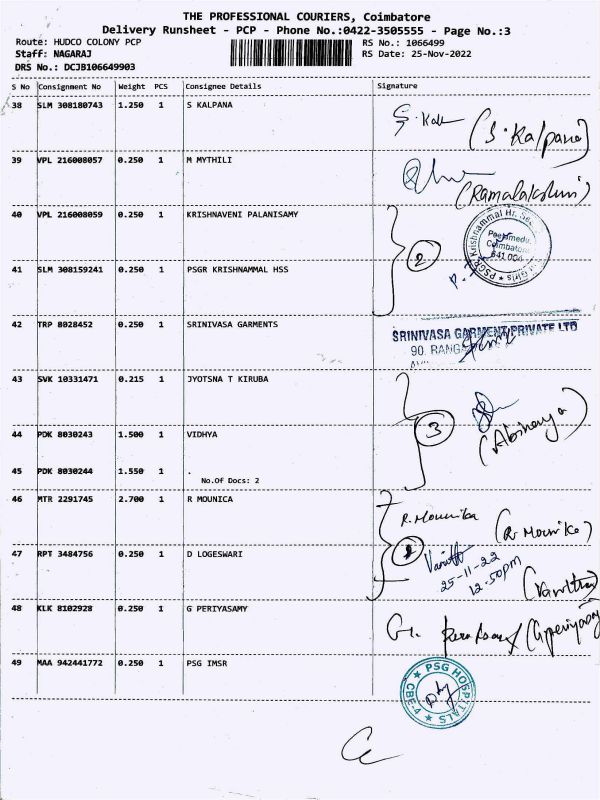 THE PROFESSIONAL COURIERS, Coimbatore
Delivery Runsheet - PCP - Phone No.:0422-3505555 - Page No.:3
Route: HUDCO COLONY PCP RS No.: 1066499
Staff: NAGARAJ RS Date: 25-Nov-2022
DRS No.: DCJB106649903
S No Consignment No Weight PCS Consignee Details Signature
38 SLM 308180743 1.250 1 S KALPANA
S. Kal (S. Kalpana)
39 VPL 216008057 0.250 1 M MYTHILI
(Ramalakshmi)
40 VPL 216008059 0.250 1 KRISHNAVENI PALANISAMY
PSGR Krishnammal Hr. Sec
Peelamedu,
Coimbatore
641 004
Girls
2
41 SLM 308159241 0.250 1 PSGR KRISHNAMMAL HSS
42 TRP 8028452 0.250 1 SRINIVASA GARMENTS
SRINIVASA GARMENT PRIVATE LTD
90, RANGA
43 SVK 10331471 0.215 1 JYOTSNA T KIRUBA
3
(Abinaya)
44 PDK 8030243 1.500 1 VIDHYA
45 PDK 8030244 1.550 1 .
No.Of Docs: 2
46 MTR 2291745 2.700 1 R MOUNICA
R. Mounika (R. Mounika)
47 RPT 3484756 0.250 1 D LOGESWARI
25-11-22
12.50pm
(Vanitha)
48 KLK 8102928 0.250 1 G PERIYASAMY
G. (G periyasamy)
49 MAA 942441772 0.250 1 PSG IMSR
PSG HOSPITALS
CBE-4